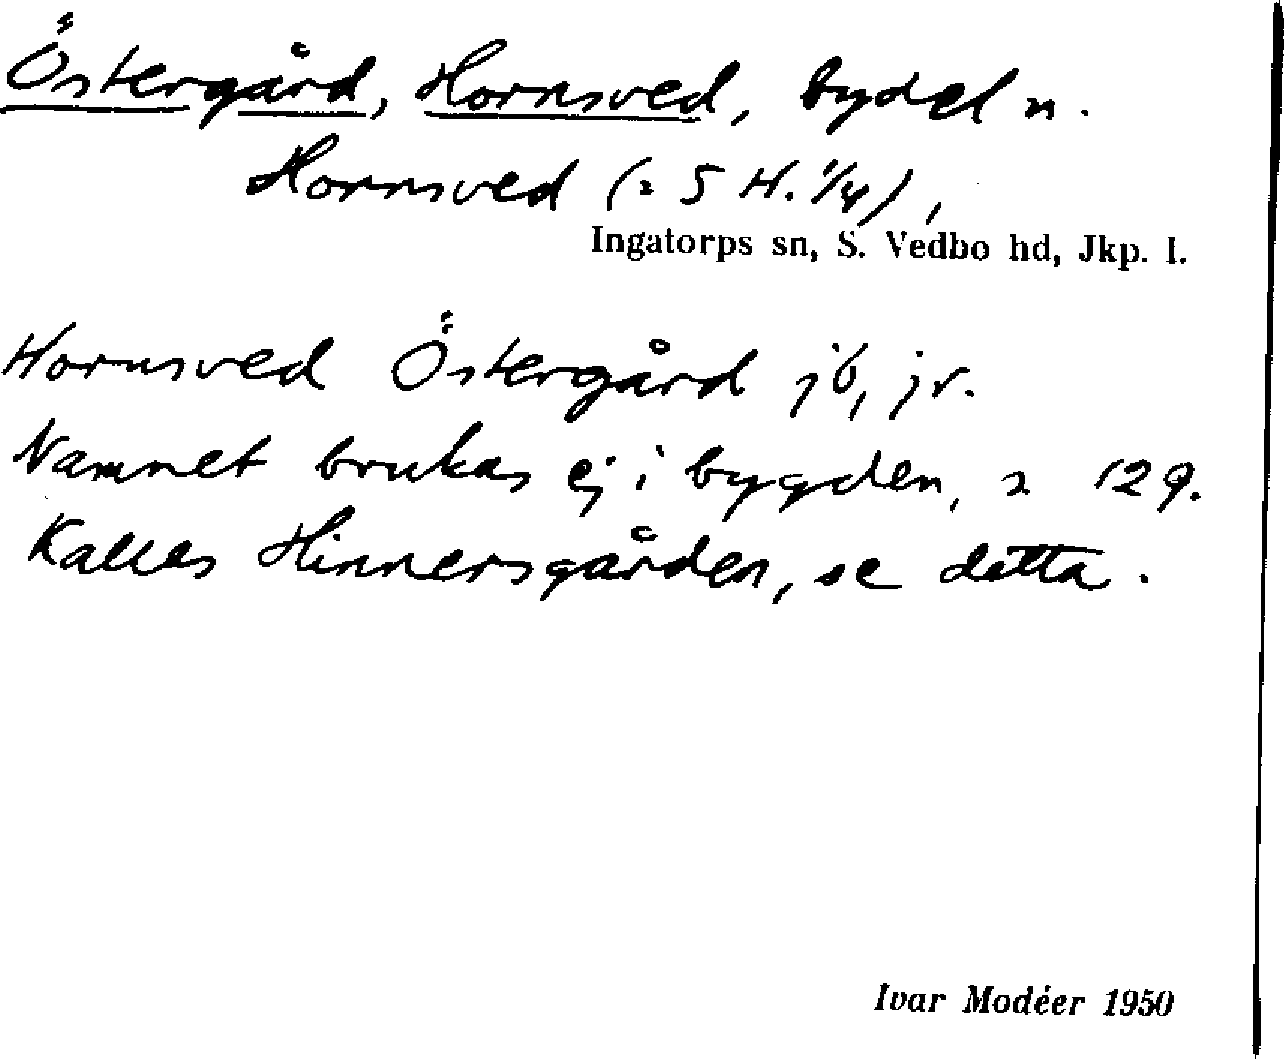 Östergård, Hornsved, bydel n.
Hornsved (= 5 H. 1/4),
Ingatorps sn, S. Vedbo hd, Jkp. l.
Hornsved Östergård jb, jr.
Namnet brukas ej i bygden, 2 129.
Kallas Hinnersgården, se detta.
Ivar Modéer 1950